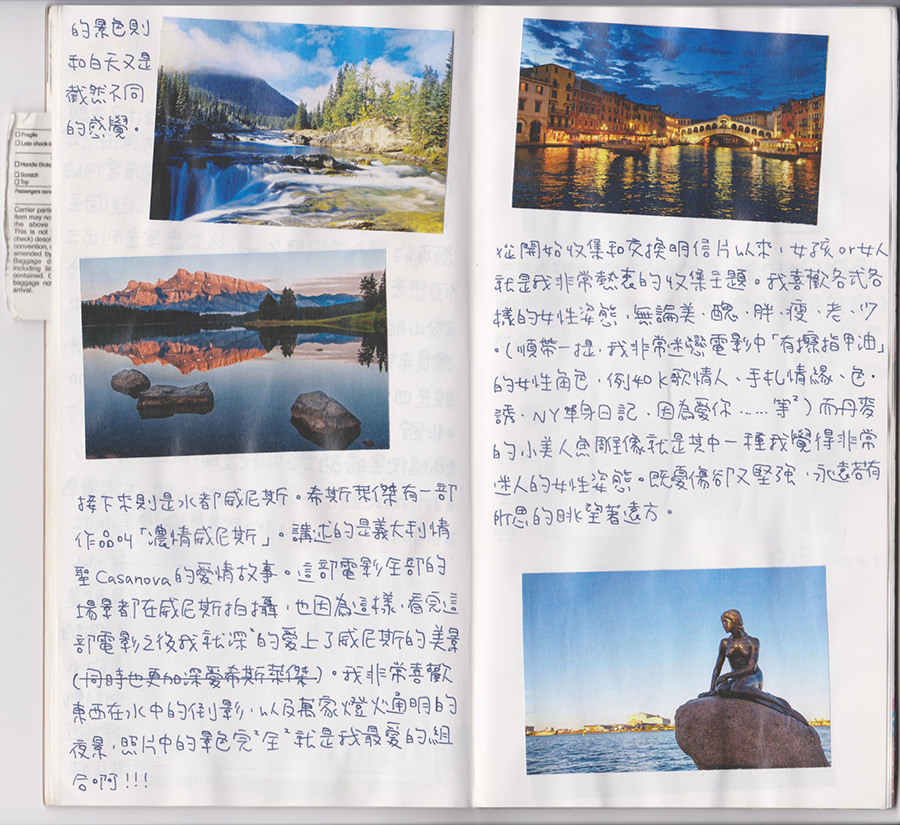 的景色則
和白天又是
截然不同
的感覺。
接下來則是水都威尼斯。希斯萊傑有一部
作品叫「濃情威尼斯」。講述的是義大利情
聖Casanova的愛情故事。這部電影全部的
場景都在威尼斯拍攝，也因為這樣，看完這
部電影之後我就深²的愛上了威尼斯的美景
(同時也更加深愛希斯萊傑)。我非常喜歡
東西在水中的倒影，以及萬家燈火通明的
夜景，照片中的景色完²全²就是我最愛的組
合啊!!!
從開始收集和交換明信片以來，女孩or女人
就是我非常熱衷的收集主題。我喜歡各式各
樣的女性姿態，無論美、醜、胖、瘦、老、少
。(順帶一提，我非常迷戀電影中「有擦指甲油」
的女性角色，例如K歌情人、手札情緣、色，
誘、NY單身日記、因為愛你……等²)而丹麥
的小美人魚雕像就是其中一種我覺得非常
迷人的女性姿態。既憂傷卻又堅強，永遠若有
所思的眺望著遠方。
Fragile
Late check-i
Handle Broke
Scratch
Top
Passengers name
Carrier partic
item may no
the above
This is not
check) descri
convention, a
amended by
Baggage c
including its
contained. C
baggage not
arrival.